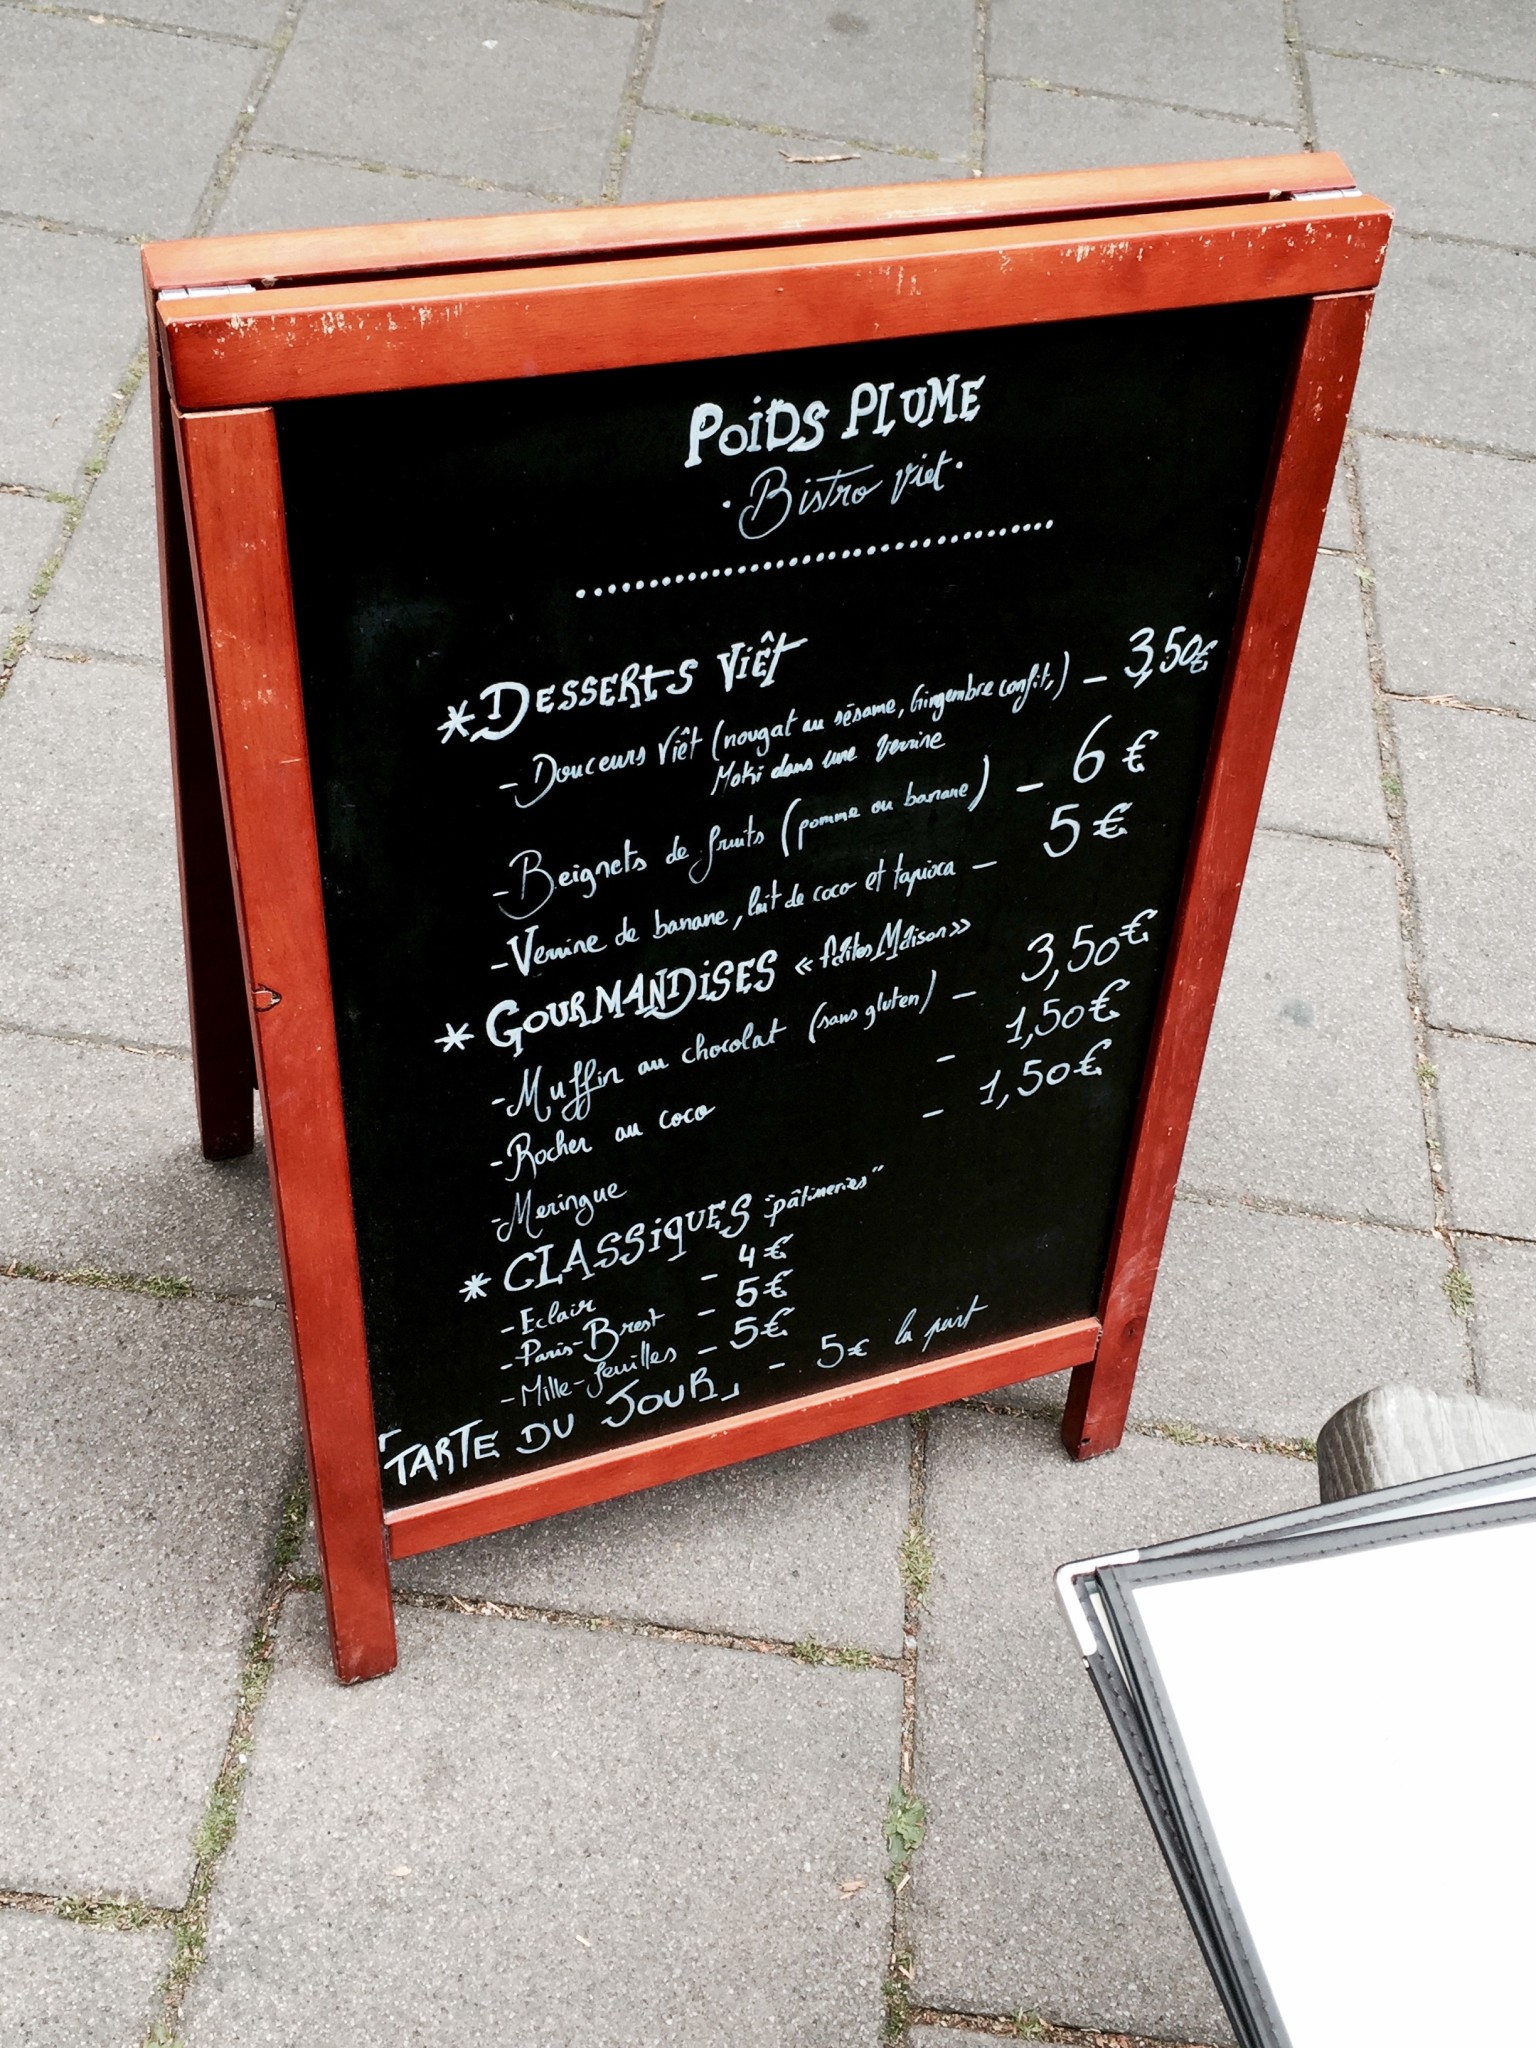 POIDS PLUME
· Bistro Viet ·
* DESSERTS VIÊT
- Douceurs Viêt (nougat au sésame, Gingembre confit,) - 3,50€
Moki dans une verrine
- Beignets de fruits (pomme ou banane) - 6 €
- Verrine de banane, lait de coco et tapioca - 5 €
* GOURMANDISES « fAites Maison »
- Muffin au chocolat (sans gluten) - 3,50€
- Rocher au coco - 1,50€
- Meringue - 1,50€
* CLASSIQUES "pâtisseries"
- Eclair - 4 €
- Paris-Brest - 5€
- Mille-feuilles - 5€
「TARTE DU JOUR」 - 5€ la part